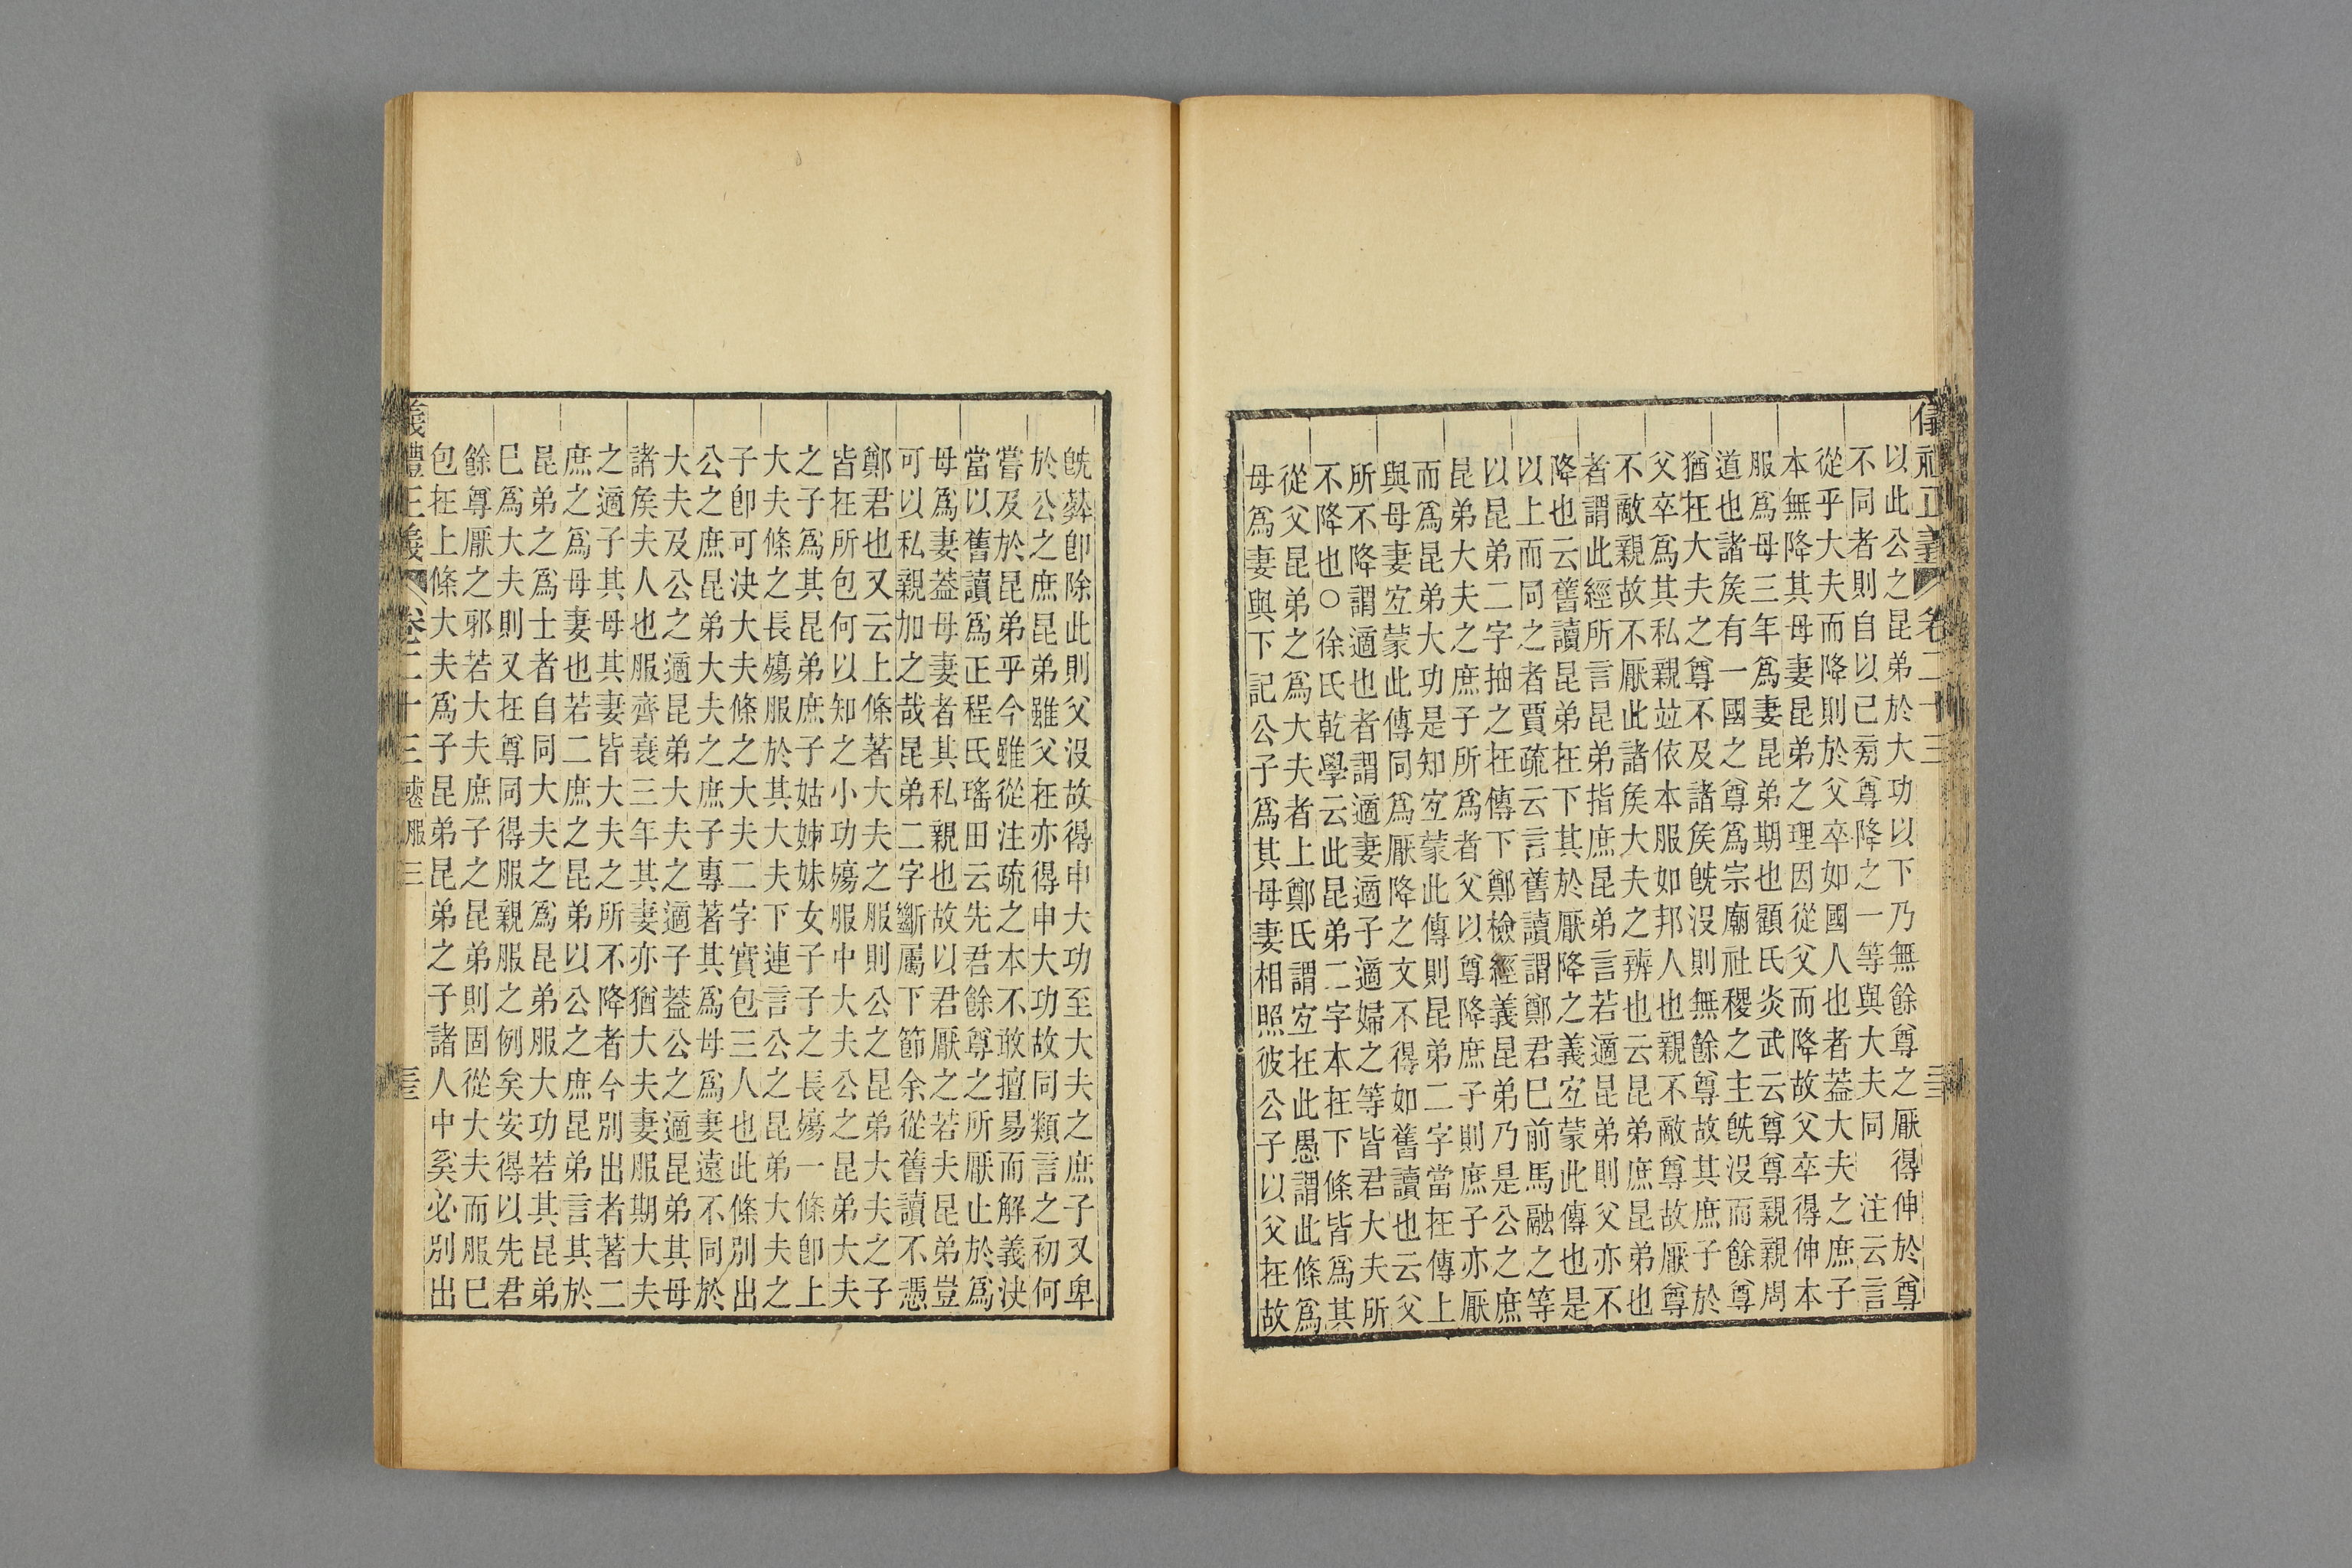 儀禮正義 卷二十三
以此公之昆弟於大功以下乃無餘尊之厭得伸於尊
不同者則自以已㫄尊降之一等與大夫同 注云言
從乎大夫而降則於父卒如國人也者蓋大夫之庶子
本無降其母妻昆弟之理因從父而降故父卒得伸本
服爲母三年爲妻昆弟期也顧氏炎武云尊尊親親周
道也諸矦有一國之尊爲宗廟社稷之主旣沒而餘尊
猶在大夫之尊不及諸矦旣沒則無餘尊故其庶子於
父卒爲其私親竝依本服如邦人也親不敵尊故厭尊
不敵親故不厭此諸矦大夫之辨也云昆弟庶昆弟也
者謂此經所言昆弟指庶昆弟言若適昆弟則父亦不
降也云舊讀昆弟在下其於厭降之義宐蒙此傳也是
以上而同之者賈疏云言舊讀謂鄭君巳前馬融之等
以昆弟二字抽之在傳下鄭檢經義昆弟乃是公之庶
昆弟大夫之庶子所爲者父以尊降庶子則庶子亦厭
而爲昆弟大功是知宐蒙此傳則昆弟二字當在傳上
與母妻宐蒙此傳同爲厭降之文不得如舊讀也云父
所不降謂適也者謂適妻適子適婦之等皆君大夫所
不降也○徐氏乾學云此昆弟二字本在下條皆爲其
從父昆弟之爲大夫者上鄭氏謂宐在此愚謂此條爲
母爲妻與下記公子爲其母妻相照彼公子以父在故
旣葬卽除此則父沒故得申大功至大夫之庶子又卑
於公之庶昆弟雖父在亦得申大功故同類言之初何
嘗及於昆弟乎今雖從注疏之本不敢擅易而解義決
當以舊讀爲正程氏瑤田云先君餘尊之所厭止於爲
母爲妻蓋母妻者其私親也故以君厭之若夫昆弟豈
可以私親加之哉昆弟二字斷屬下節余從舊讀不憑
鄭君也又云上條著大夫之服則公之昆弟大夫之子
皆在所包何以知之小功殤服中大夫公之昆弟大夫
之子爲其昆弟庶子姑姊妹女子子之長殤一條卽上
大夫條之長殤服於其大夫下連言公之昆弟大夫之
子卽可決大夫條之大夫二字實包三人也此條別出
公之庶昆弟大夫之庶子專著其爲母爲妻遠不同於
大夫及公之適昆弟大夫之適子蓋公之適昆弟其母
諸矦夫人也服齊衰三年其妻亦猶大夫妻服期大夫
之適子其母其妻皆大夫之所不降者今別出者著二
庶之爲母妻也若二庶之昆弟以公之庶昆弟言其於
昆弟之爲士者自同大夫之爲昆弟服大功若其昆弟
巳爲大夫則又在尊同得服親服之例矣安得以先君
餘尊厭之邪若大夫庶子之昆弟則固從大夫而服巳
包在上條大夫爲子昆弟昆弟之子諸人中奚必別出
儀禮正義 卷二十三 喪服三